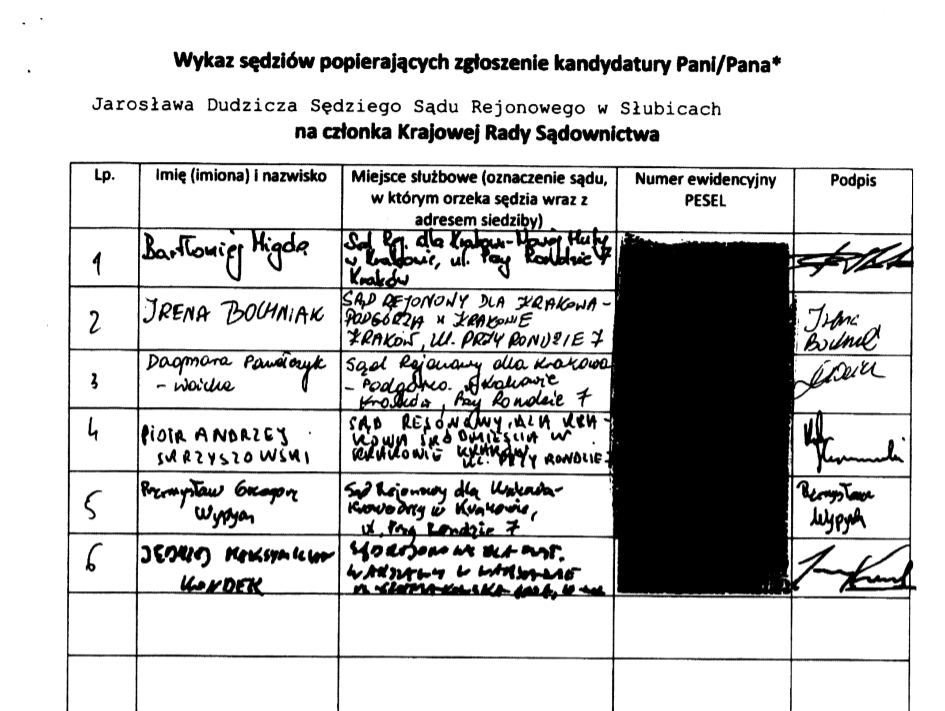 Wykaz sędziów popierających zgłoszenie kandydatury Pani/Pana*
Jarosława Dudzicza Sędziego Sądu Rejonowego w Słubicach
na członka Krajowej Rady Sądownictwa
Lp.
Imię (imiona) i nazwisko
Miejsce służbowe (oznaczenie sądu,
w którym orzeka sędzia wraz z
adresem siedziby)
Numer ewidencyjny
PESEL
Podpis
1
Bartłomiej Migda
Sąd Rej. dla Krakowa-Nowej Huty
w Krakowie, ul. Przy Rondzie 7
Kraków
2
IRENA BOCHNIAK
SĄD REJONOWY DLA KRAKOWA-
PODGÓRZA W KRAKOWIE
KRAKÓW, UL. PRZY RONDZIE 7
Irena
Bochniak
3
Dagmara Pawełczyk
- Woicka
Sąd Rejonowy dla Krakowa
- Podgórza Krakowie
Kraków, Przy Rondzie 7
4
PIOTR ANDRZEJ
SKRZYSZOWSKI
SĄD REJONOWY DLA KRA-
KOWA ŚRÓDMIEŚCIA W
KRAKOWIE KRAKÓW
UL. PRZY RONDZIE 7
5
Przemysław Grzegorz
Wypych
Sąd Rejonowy dla Krakowa-
Krowodrzy w Krakowie,
ul. Przy Rondzie 7
Przemysław
Wypych
6
JĘDRZEJ MAKSYMILIAN
KONDEK
SĄD REJONOWY DLA M.ST.
WARSZAWY W WARSZAWIE